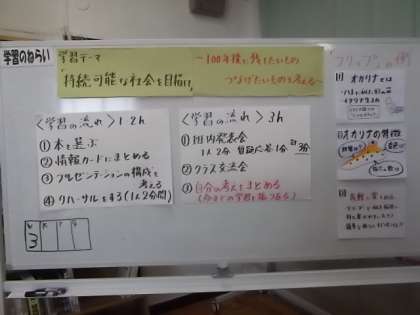 学習のねらい
学習テーマ
「持続可能な社会を目指し
～100年後に残したいもの
つなげたいものを考える～
〈学習の流れ〉1.2h
①本を選ぶ
②情報カードにまとめる
③プレゼンテーションの構成を
考える
④リハーサルをする(1人2分間)
〈学習の流れ〉3h
①班内発表会
1人2分 質疑応答1分 計3分
②クラス交流会
③自分の考えをまとめる
(今までの学習を振り返る)
フリップの例
オカリナとは
オカリナの特徴
3